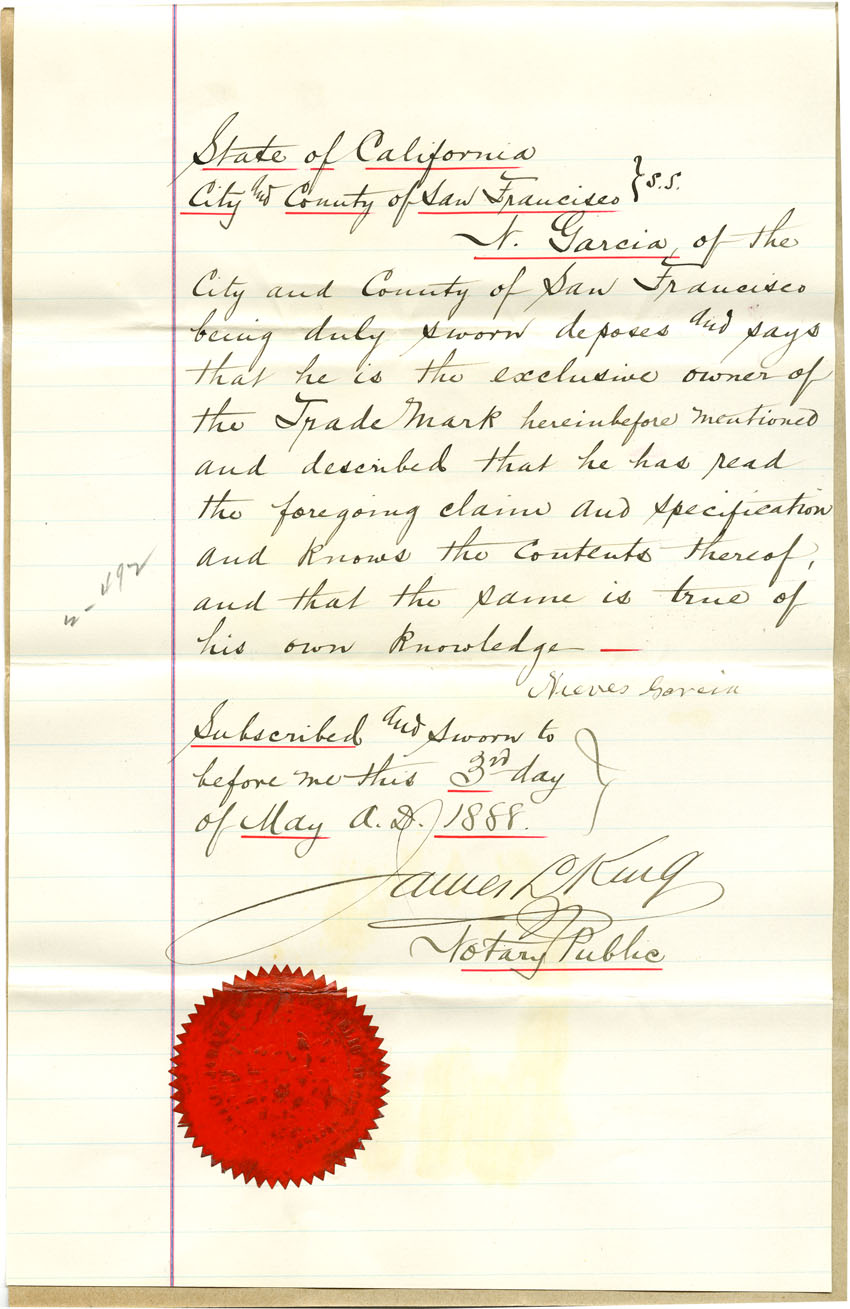 State of California
City and County of San Francisco } S.S.
N. Garcia, of the
City and County of San Francisco
being duly sworn deposes and says
that he is the exclusive owner of
the Trade Mark hereinbefore mentioned
and described that he has read
the foregoing claim and specification
and knows the contents thereof,
and that the same is true of
his own knowledge —
Nieves Garcia
Subscribed and Sworn to
before me this 3rd day
of May A.D. 1888.
James L King
Notary Public